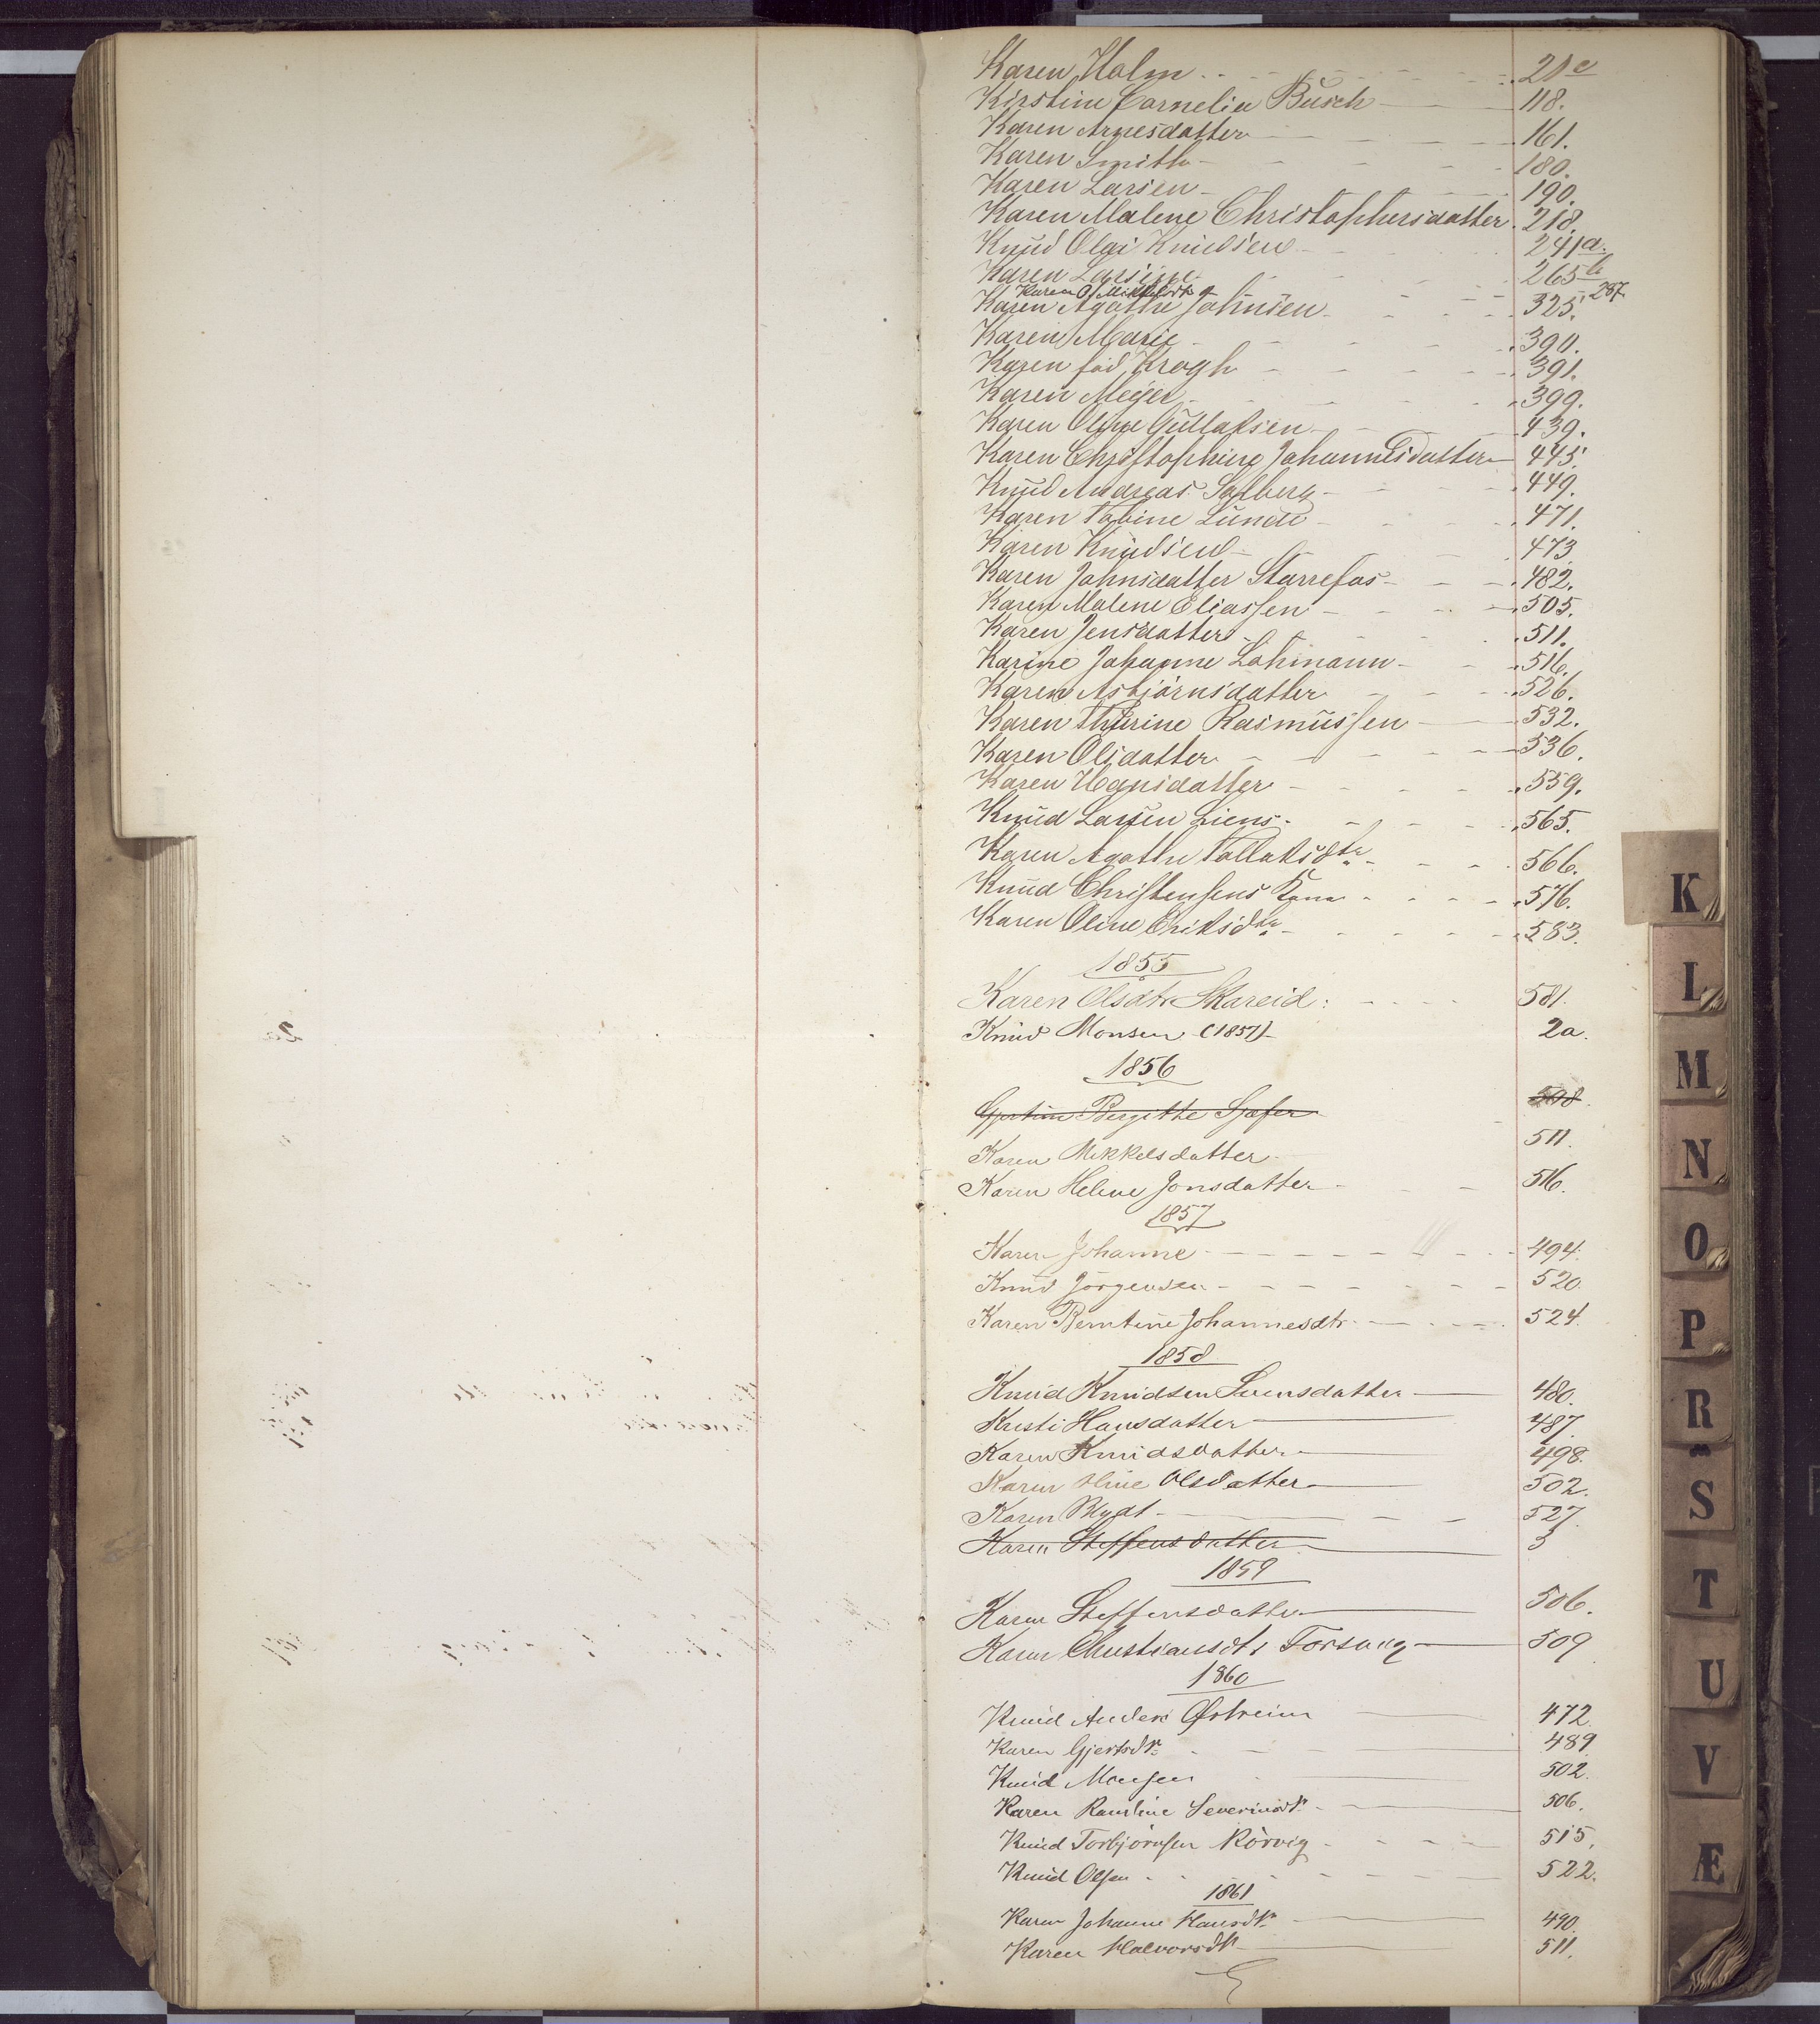 Karen Holm 21c
Kirstine Cornelia Busch 118.
Karen Arnesdatter 161.
Karen Smith 180.
Karen Larsen 190.
Karen Malene Christophersdatter 218.
Knud Olai Knudsen 241a.
Karen Larsine 265b
Karen O. Mikkelsdtr 287.
Karen Agathe Johnsen 325.
Karen Marie 390.
Karen fød Krogh 391.
Karen Meyer 399.
Karen Oline Gullaksen 439.
Karen Christophine Johannesdatter 445.
Knud Andreas Solberg 449.
Karen Tobine Lunde 471.
Karen Knudsen 473
Karen Johnsdatter Starrefos 482.
Karen Malene Eliassen 505.
Karen Jensdatter 511.
Karine Johanne Lohmann 516.
Karen Asbjørnsdatter 526.
Karen Thurine Rasmussen 532.
Karen Olsdatter 536.
Karen Hansdatter 559.
Knud Larsen Liens 565.
Karen Agathe Tollaksdtr 566.
Knud Christensens Kone 576.
Karen Oline Eriksdtr 583.
1855
Karen Olsdtr Skareid: 581.
Knud Monsen (1857) 2a.
1856
Birgitte 508.
Karen Mikkelsdatter 511.
Karen Helene Jonsdatter 516.
1857
Karen Johanne 494.
Knud Jörgensen 520.
Karen Berntine Johannesdtr. 524.
1858
Knud Knudsen Svensdatter 480.
Kristi Hansdatter 487.
Karen Knudsdatter 498.
Karen Oline Olsdatter 502.
Karen Blydt 527.
Karen Steffensdatter 3
1859
Karen Steffensdatter 506.
Karen Christiansdtr Forsvig 509
1860
Knud Anders Østreim 472.
Karen Gjertsdtr. 489
Knud Monsen 502.
Karen Severinsdtr. 506.
Knud Torbjörnsen Rörvig 515.
Knud Olsen 522.
1861
Karen Johanne Hansdtr. 490.
Karen Halvorsdtr 511.
K
L
M
N
O
P
R
S
T
U
V
Æ